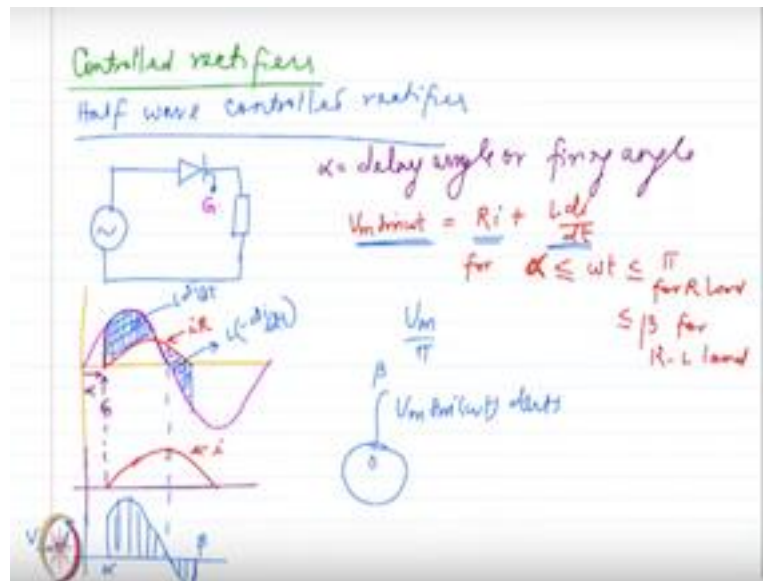 Controlled rectifiers
Half wave controlled rectifier
α = delay angle or firing angle
G
Vm sin ωt = Ri + L di/dt
for α ≤ ωt ≤ π
for R load
≤ β for
R-L load
L di/dt
iR
L(-di/dt)
Vm/π
α
β
∫ Vm sin(ωt) dωt
0
i
V
α
β